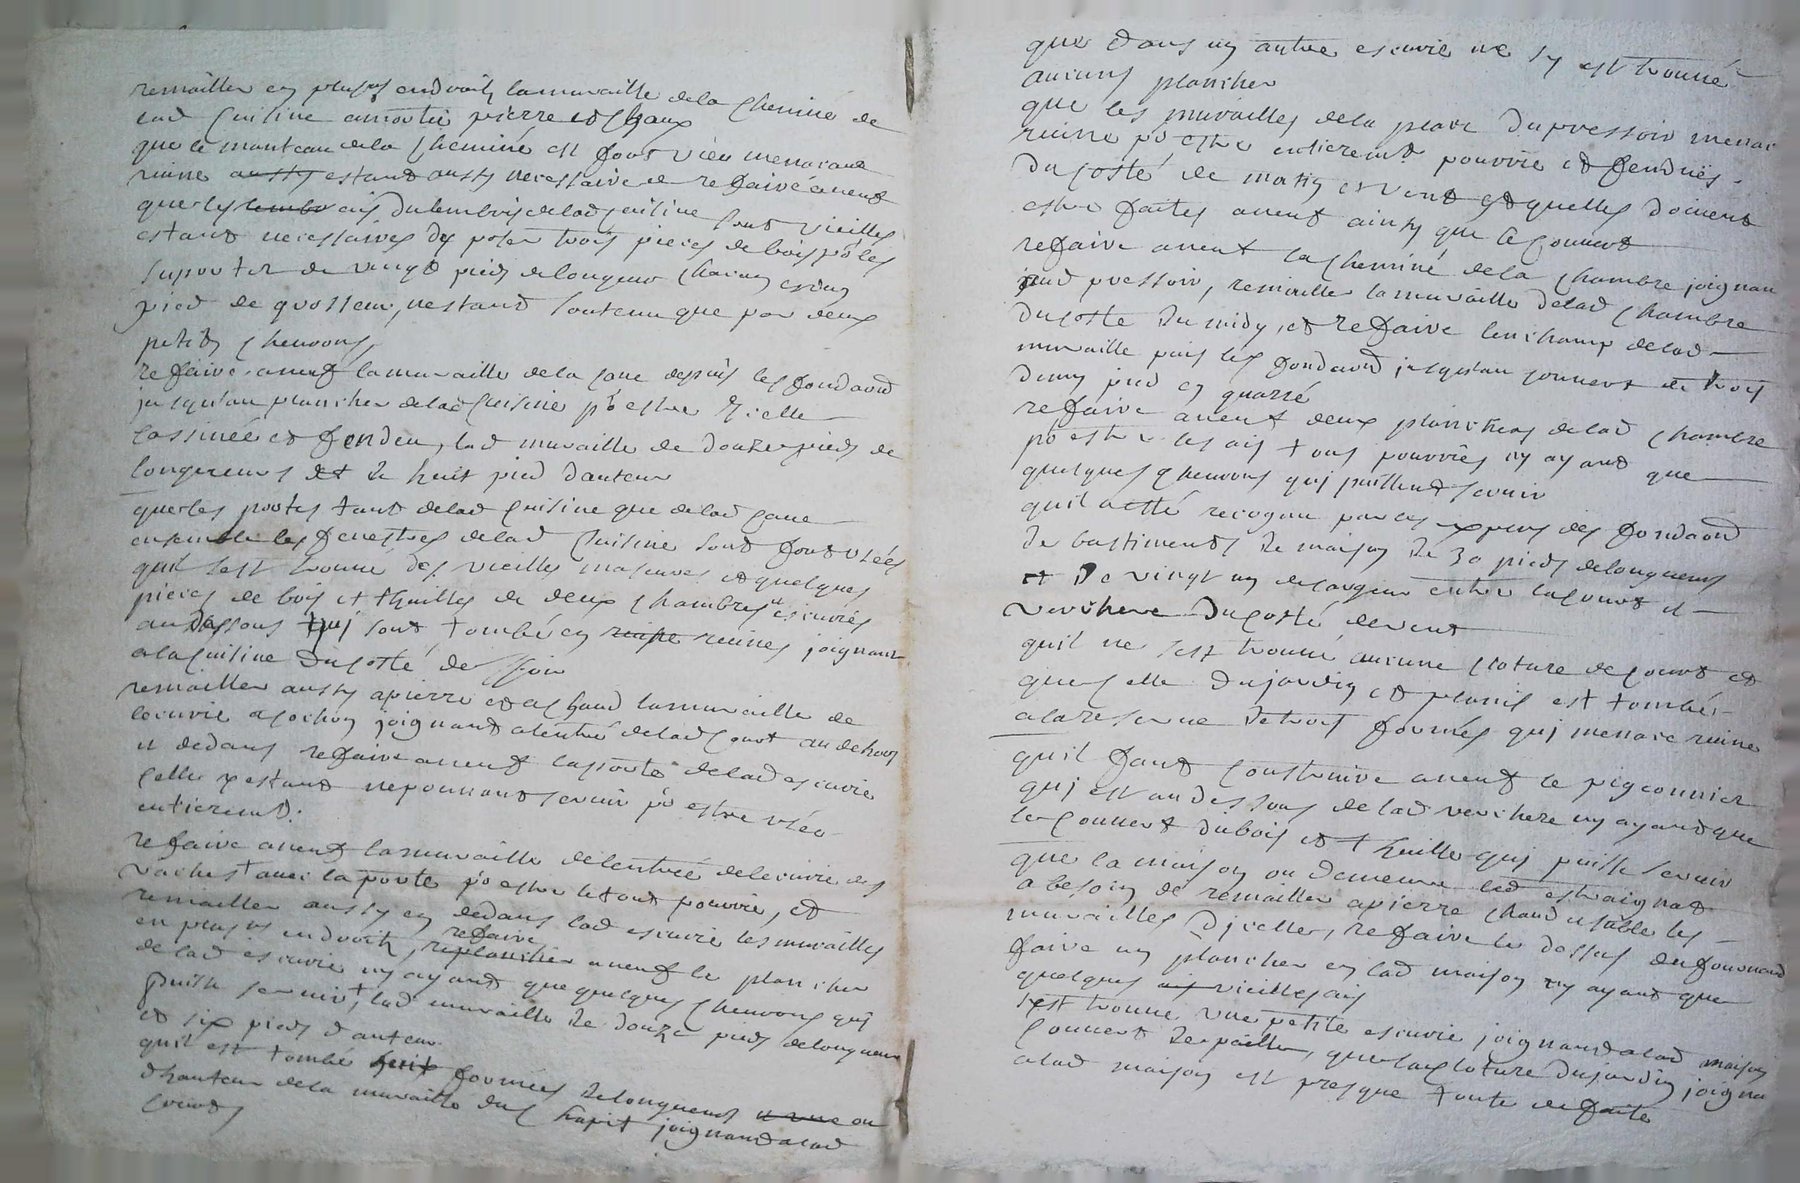 remailler en plusrs endroits la muraille de la cheminé de
lad cuisine amortié pierre et chaux
que le manteau de la cheminé est fort vieu menacant
ruine austy estant austy necessaire de refaire a neuf
que les lembr ais du lembris de lad cuisine sont vieilles
estant necessaires dy poser trois pieces de bois po les
suporter de vingt pieds de longeur chacun et dun
pied de grosseur, nestant soutenu que par deux
petits chevrons
refaire a neuf la muraille de la cave depuis les fondaons
jusqu'au plancher de lad cuisine po estre icelle
cassinée et fendeu, lad muraille de douze pieds de
longueurs et de huit pied dauteur
que les portes tant de lad cuisine que de lad cave
ensemble les fenestres de lad cuisine sont fort usées
quil sest trouvé des vieilles masures et quelques
pieces de bois et thuilles de deux chambres et escuries
au dessous quj sont tombé en ruines joignant
a la cuisine du costé de soir
remailler austy a pierre et a chaud la muraille de
lecurie a cochon joignant a lentré de lad court au dehors
et dedans refaire a neuf la porte de lad escurie
celle y estant ne pouvant servir po estre usée
entieremt.
refaire a neuf la muraille de lentrée de lecurie des
vaches avec la porte po estre le tout pourrie, et
remailler austy en dedans lad escurie les murailles
en plusrs endroits, replancher refaire a neuf le plancher
de lad escurie ny ayant que quelques chevrons quj
puisse servir, lad muraille de douze pieds de longueur
et six pieds dauteur
quil est tombé huit fournées de longueurs et une ou
dhauteur de la muraille du chapit joignand a lad
que dans un autre escurie ne sy est trouvé
aucuns plancher
que les murailles de la place du pressoir menac
ruine po estre entieremt pourrie et fenduës
du costé de matin et vent et quelles doivent
estre faites a neuf ainsy que le couvert
refaire a neuf la cheminé de la chambre joignan
aud pressoir, remailler la muraille de lad chambre
du coste du midy, et refaire lenchamp de lad
muraille puis les fondaons jusqu'au couvert de trois
demy pied en quarré
refaire a neuf deux planchers de lad chambre
po estre les ais tous pourriés ny ayant que
quelques chevrons quj puissent servir
quil a esté recognu par les experts des fondaons
de bastiments de maison de 30 pieds de longueurs
et de vingt un de largeur entre la court et
verchere du costé de vent
quil ne sest trouvé aucune cloture de court et
que celle du jardin et plassis est tombé
a la reserve de trois fournées quj menace ruine
quil faut construire a neuf le pigeonnier
quj est au dessous de lad verchere ny ayant que
le couvert du bois et thuille quj puisse servir
que la maison ou demeure led estraignat
a besoin de remailler a pierre chaud et sable les
murailles djcelles, refaire le dessus du four aud
faire un plancher en lad maison ny ayant que
quelques ais vieilles ais
sest trouvé une petite escurie joignand a lad maison
couvert de paille, que la cloture du jardin joigna
a lad maison est presque toute defaite